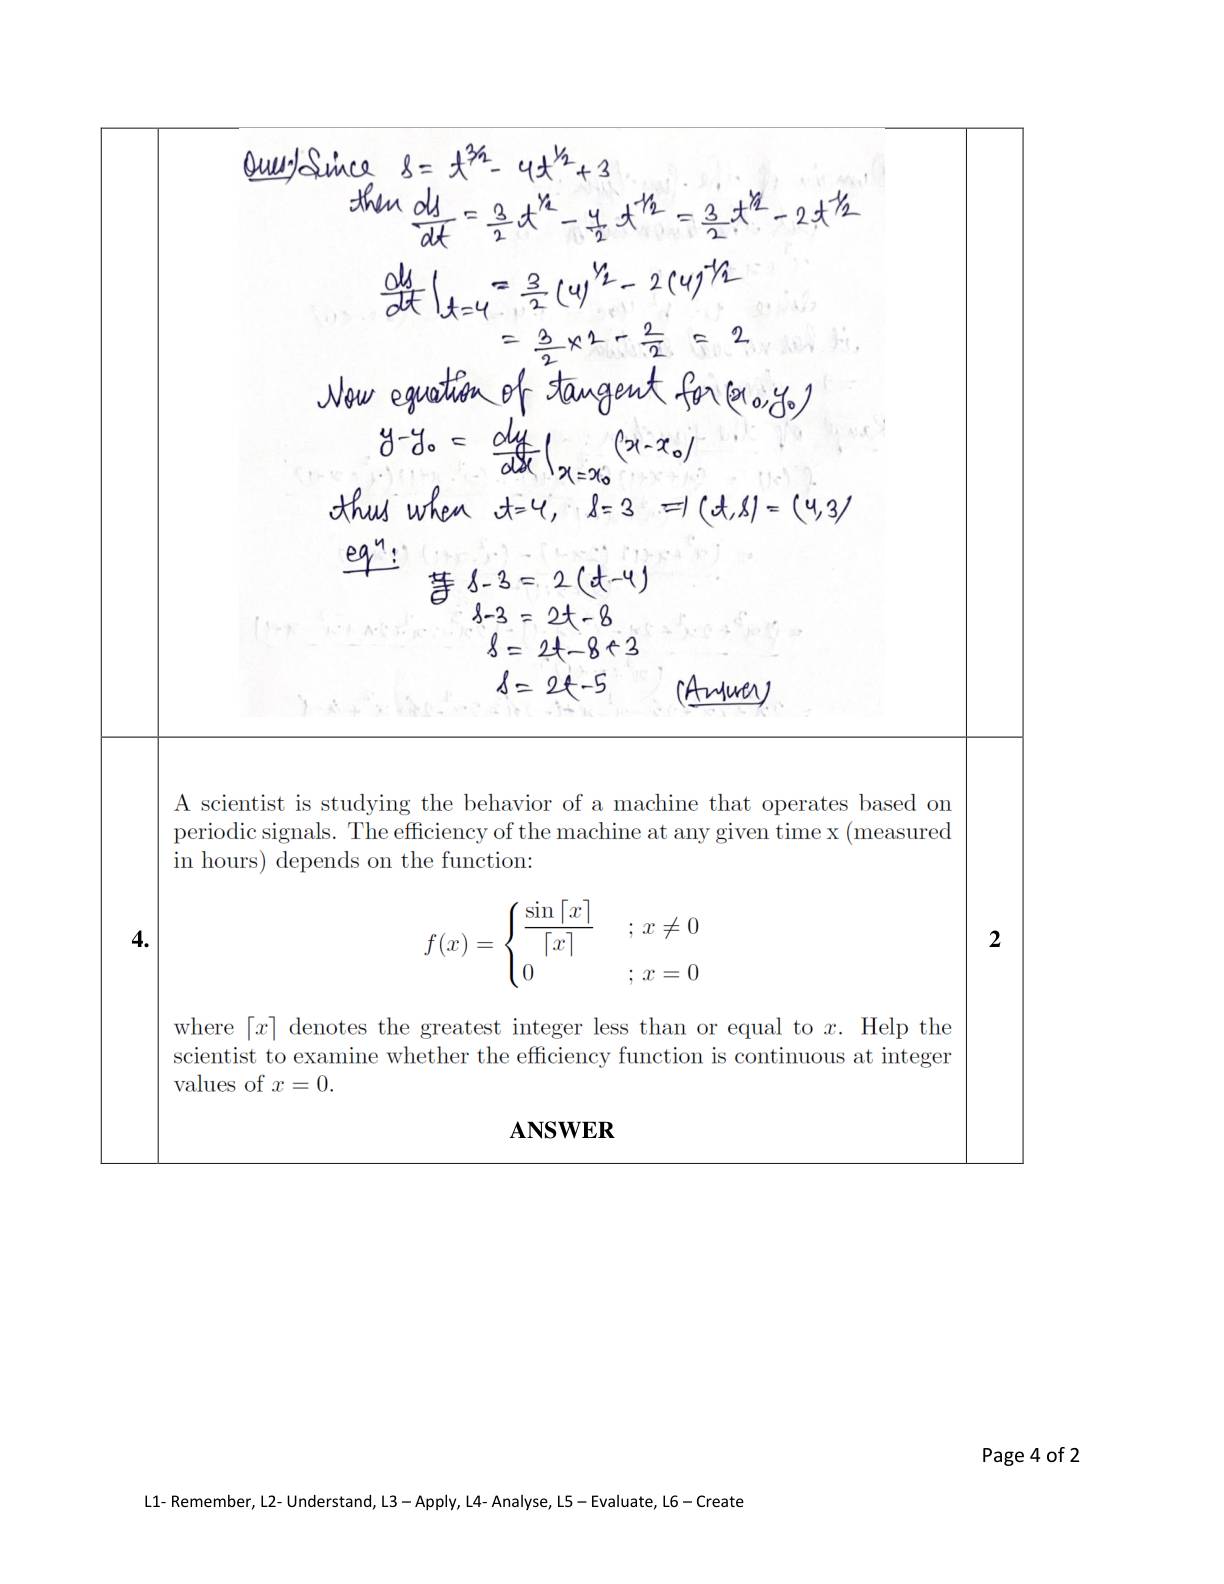 Ques) Since s = t^3/2 - 4t^1/2 + 3
then ds/dt = 3/2 t^1/2 - 4/2 t^-1/2 = 3/2 t^1/2 - 2t^-1/2
ds/dt |t=4 = 3/2 (4)^1/2 - 2(4)^-1/2
= 3/2 × 2 - 2/2 = 2
Now equation of tangent for (x0, y0)
y - y0 = dy/dx |x=x0 (x - x0)
thus when t=4, s=3 ⇒ (t, s) = (4, 3)
eqn:
s - 3 = 2(t - 4)
s - 3 = 2t - 8
s = 2t - 8 + 3
s = 2t - 5 (Answer)
A scientist is studying the behavior of a machine that operates based on
periodic signals. The efficiency of the machine at any given time x (measured
in hours) depends on the function:
4. f(x) = { sin ⌈x⌉ / ⌈x⌉ ; x ≠ 0 2
0 ; x = 0
where ⌈x⌉ denotes the greatest integer less than or equal to x. Help the
scientist to examine whether the efficiency function is continuous at integer
values of x = 0.
ANSWER
Page 4 of 2
L1- Remember, L2- Understand, L3 – Apply, L4- Analyse, L5 – Evaluate, L6 – Create